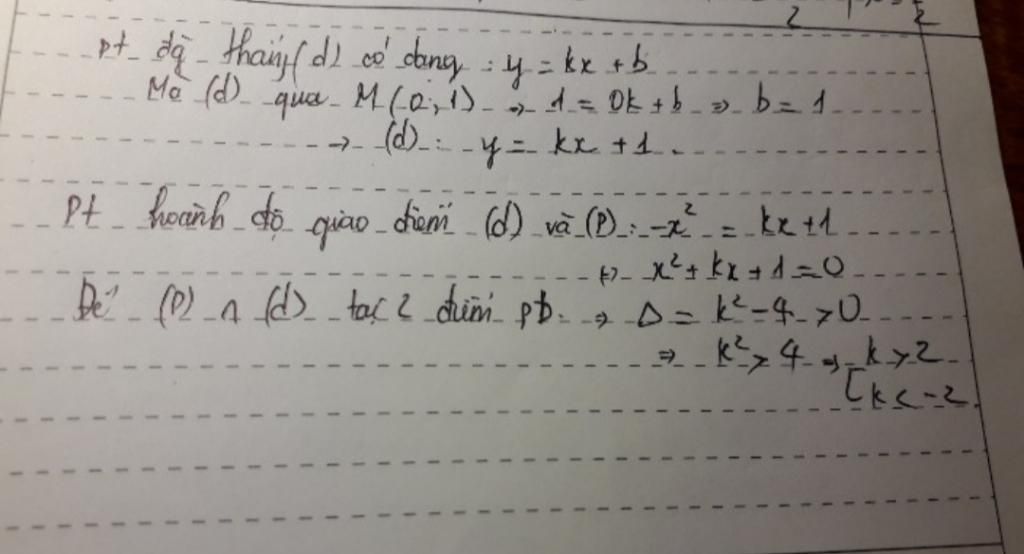 pt đg thẳng (d) có dạng : y = kx + b
Mà (d) qua M (0; 1) → 1 = 0k + b ⇒ b = 1
→ (d) : y = kx + 1.
Pt hoành độ giao điểm (d) và (P) : -x² = kx + 1
↔ x² + kx + 1 = 0
Để (P) ∩ (d) tại 2 điểm pb. ⇒ Δ = k² - 4 > 0
⇒ k² > 4 ⇒ [ k > 2
k < -2